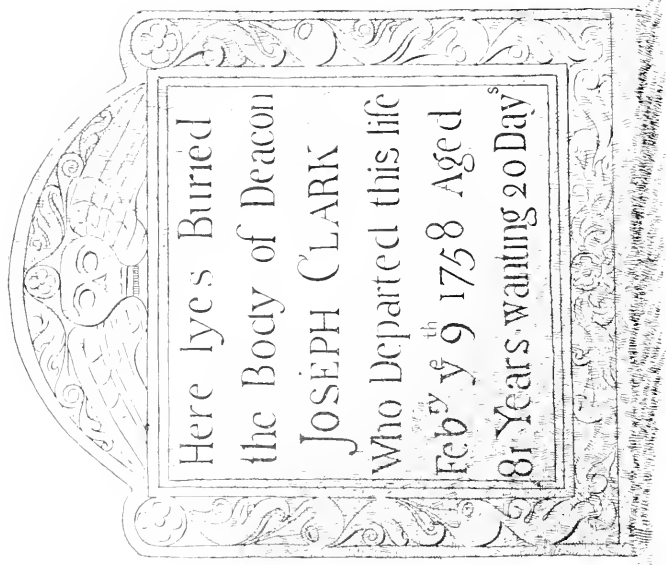 Here lyes Buried
the Body of Deacon
JOSEPH CLARK
Who Departed this life
Febʳʸ yᵉ 9ᵗʰ 1758 Aged
81 Years wanting 20 Dayˢ